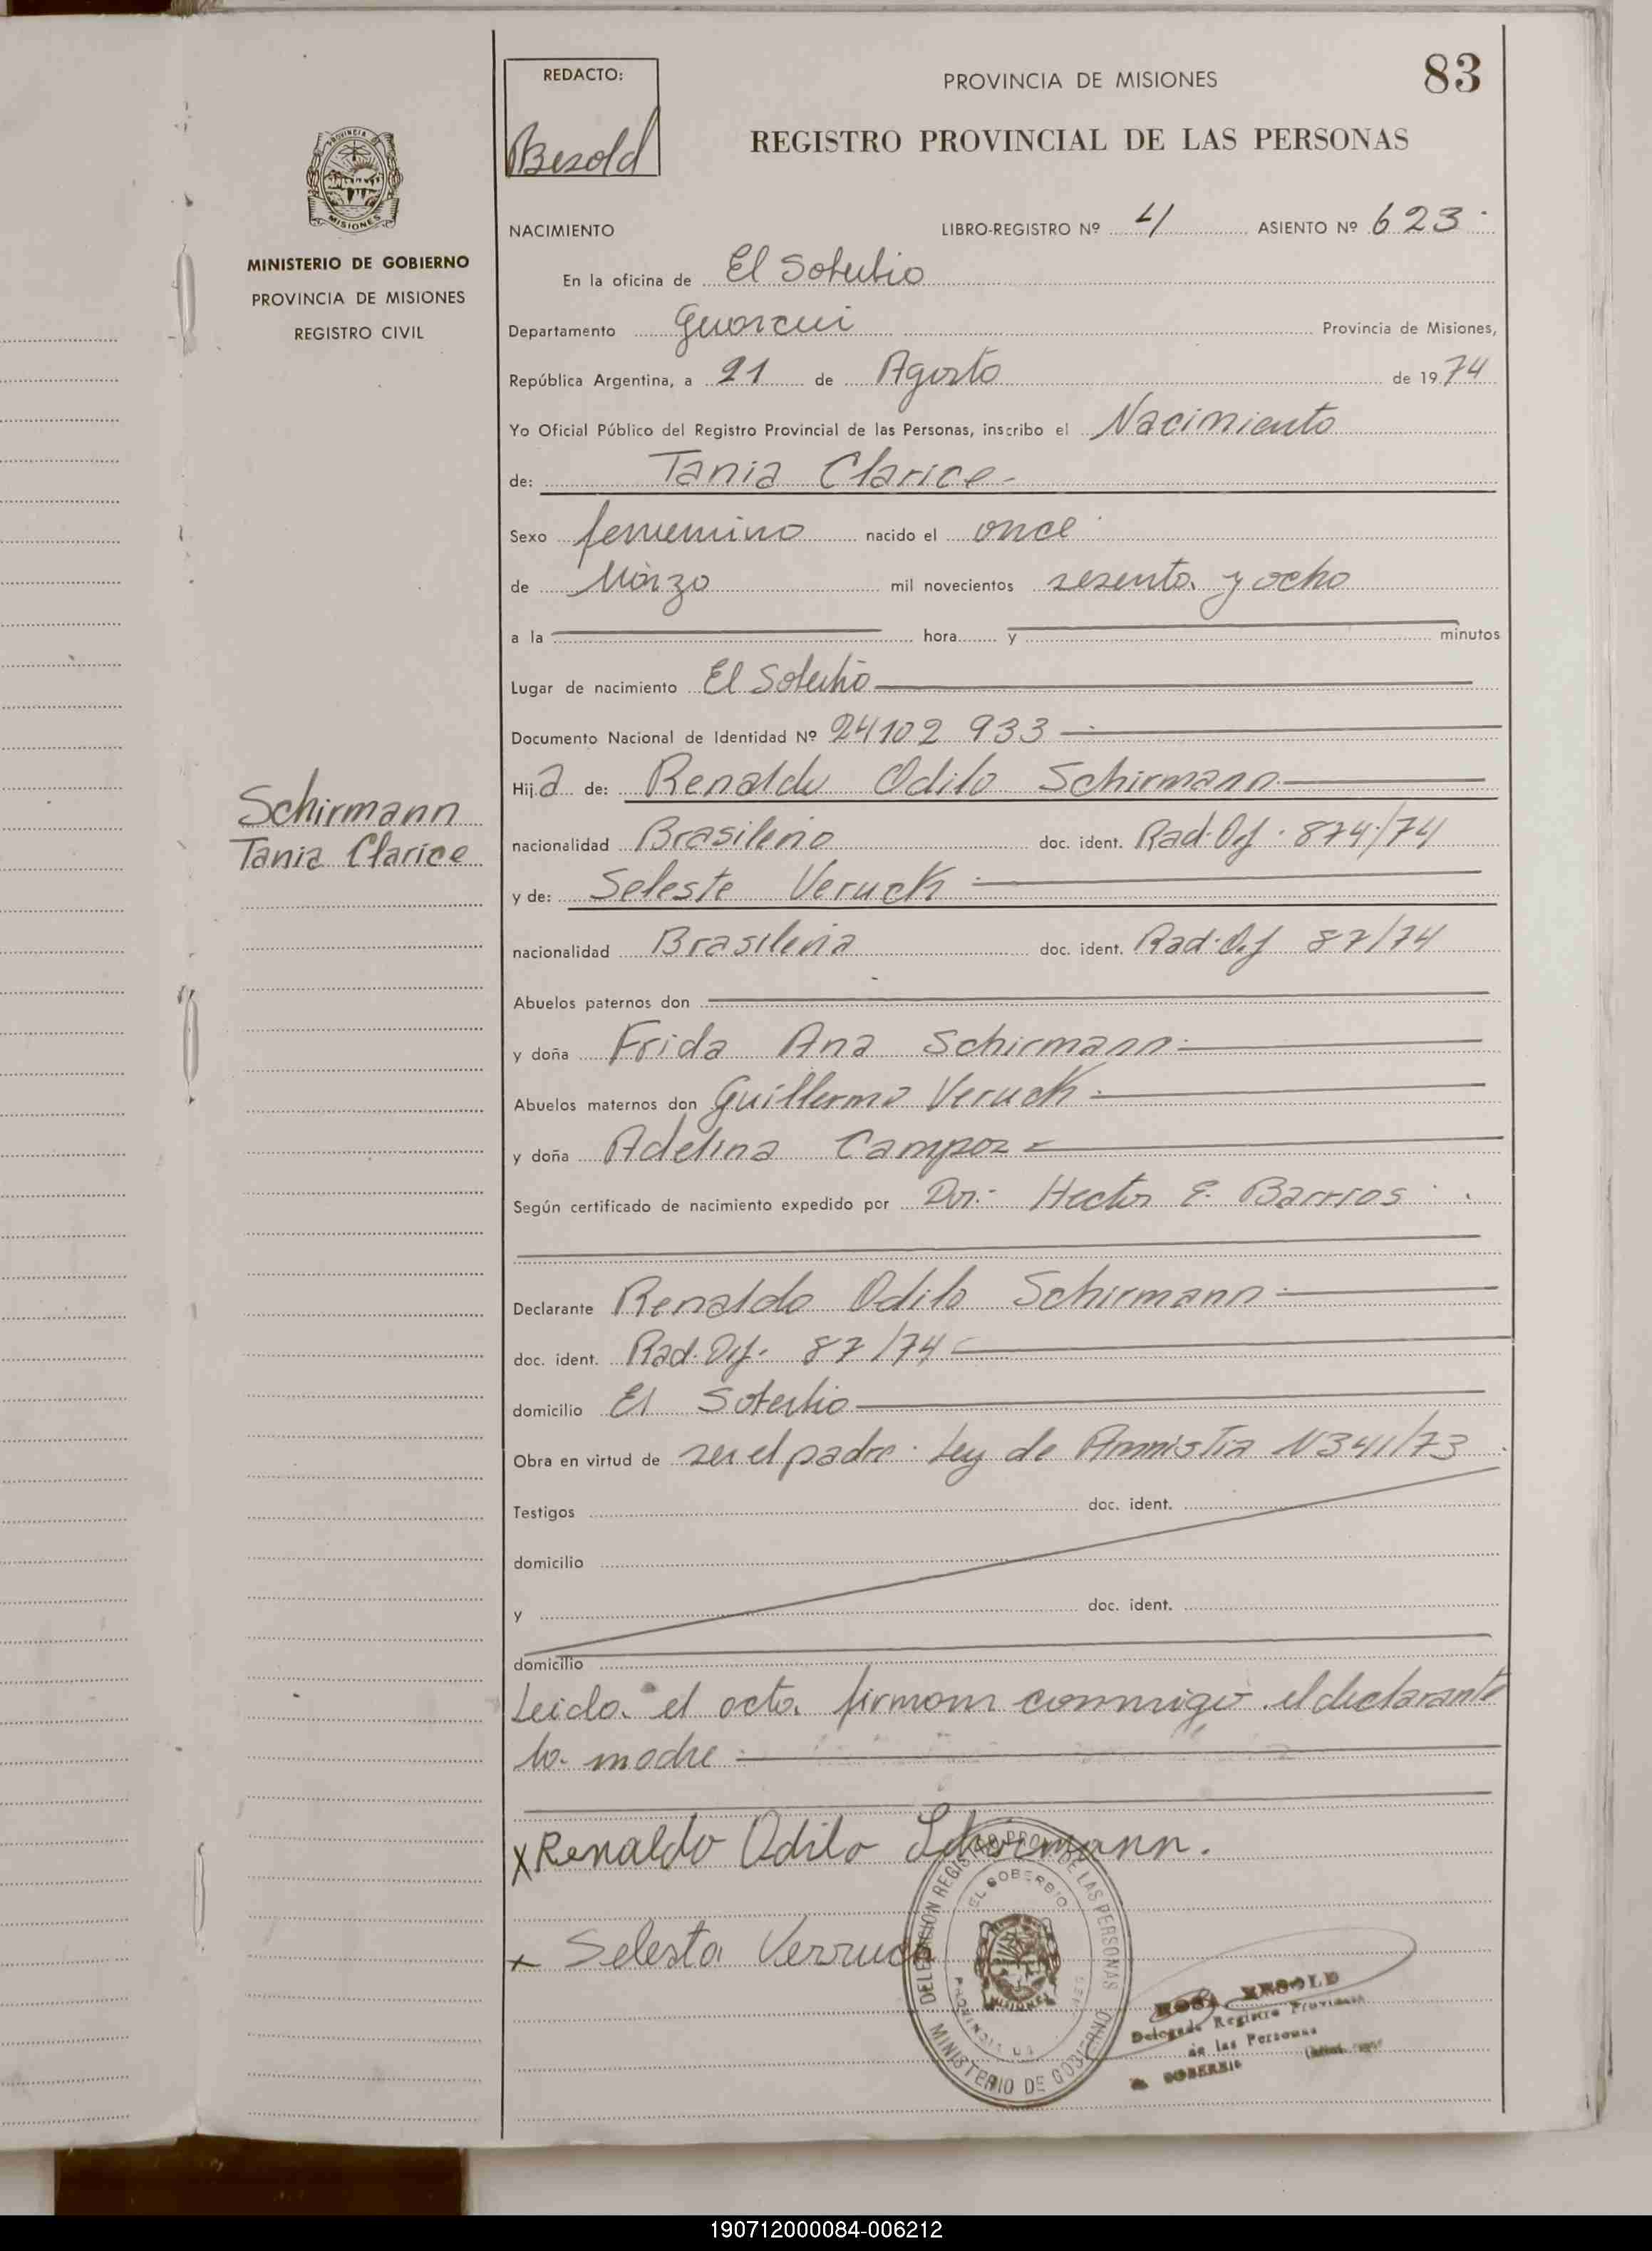 83
REDACTO:
Besold
PROVINCIA DE MISIONES
REGISTRO PROVINCIAL DE LAS PERSONAS
PROVINCIA DE
MISIONES
MINISTERIO DE GOBIERNO
PROVINCIA DE MISIONES
REGISTRO CIVIL
NACIMIENTO LIBRO-REGISTRO Nº 4 ASIENTO Nº 623
En la oficina de El Soberbio
Departamento Guarani Provincia de Misiones,
República Argentina, a 21 de Agosto de 1974
Yo Oficial Público del Registro Provincial de las Personas, inscribo el Nacimiento
de: Tania Clarice
Sexo femenino nacido el once
de Marzo mil novecientos sesenta y ocho
a la hora y minutos
Lugar de nacimiento El Soberbio
Documento Nacional de Identidad Nº 24102 933
Hija de: Renaldo Odilo Schirmann
Schirmann
Tania Clarice
nacionalidad Brasileño doc. ident. Rad. Def. 874/74
y de: Seleste Veruck
nacionalidad Brasileña doc. ident. Rad. Def 87/74
Abuelos paternos don
y doña Frida Ana Schirmann
Abuelos maternos don Guillermo Veruck
y doña Adelina Campoz
Según certificado de nacimiento expedido por Dr. Hector E. Barrios
Declarante Renaldo Odilo Schirmann
doc. ident. Rad. Def. 87/74
domicilio El Soberbio
Obra en virtud de ser el padre. Ley de Amnistia N341/73
Testigos doc. ident.
domicilio
y doc. ident.
domicilio
Leida el acta firman conmigo el declarante
la madre
x Renaldo Odilo Schirmann.
x Selesta Verruck
DELEGACION REGISTRO PROV. DE LAS PERSONAS
EL SOBERBIO
MISIONES
PROVINCIA DE
MINISTERIO DE GOBIERNO
ROSA BESOLD
Delegada Registro Provincial
de las Personas
SOBERBIO
190712000084-006212